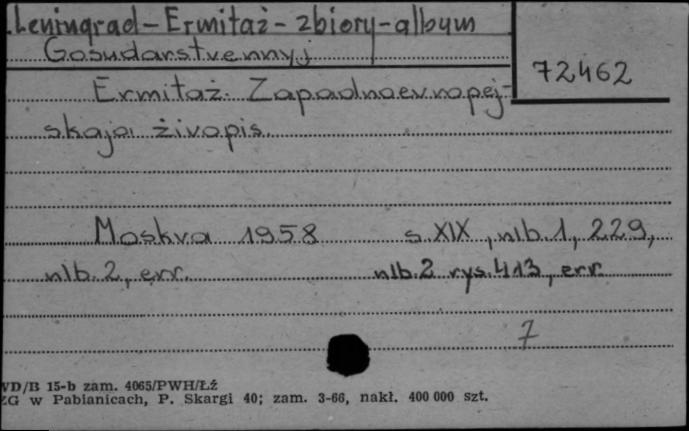 Leningrad - Ermitaż - zbiory - album
Gosudarstvennyj
72462
Ermitaż. Zapadnoevropej-
skaja živopis.
Moskva 1958 s. XIX, nlb. 1, 229,
nlb. 2, err. nlb. 2 rys. 413, err
7
VD/B 15-b zam. 4065/PWH/Łź
ZG w Pabianicach, P. Skargi 40; zam. 3-66, nakł. 400 000 szt.